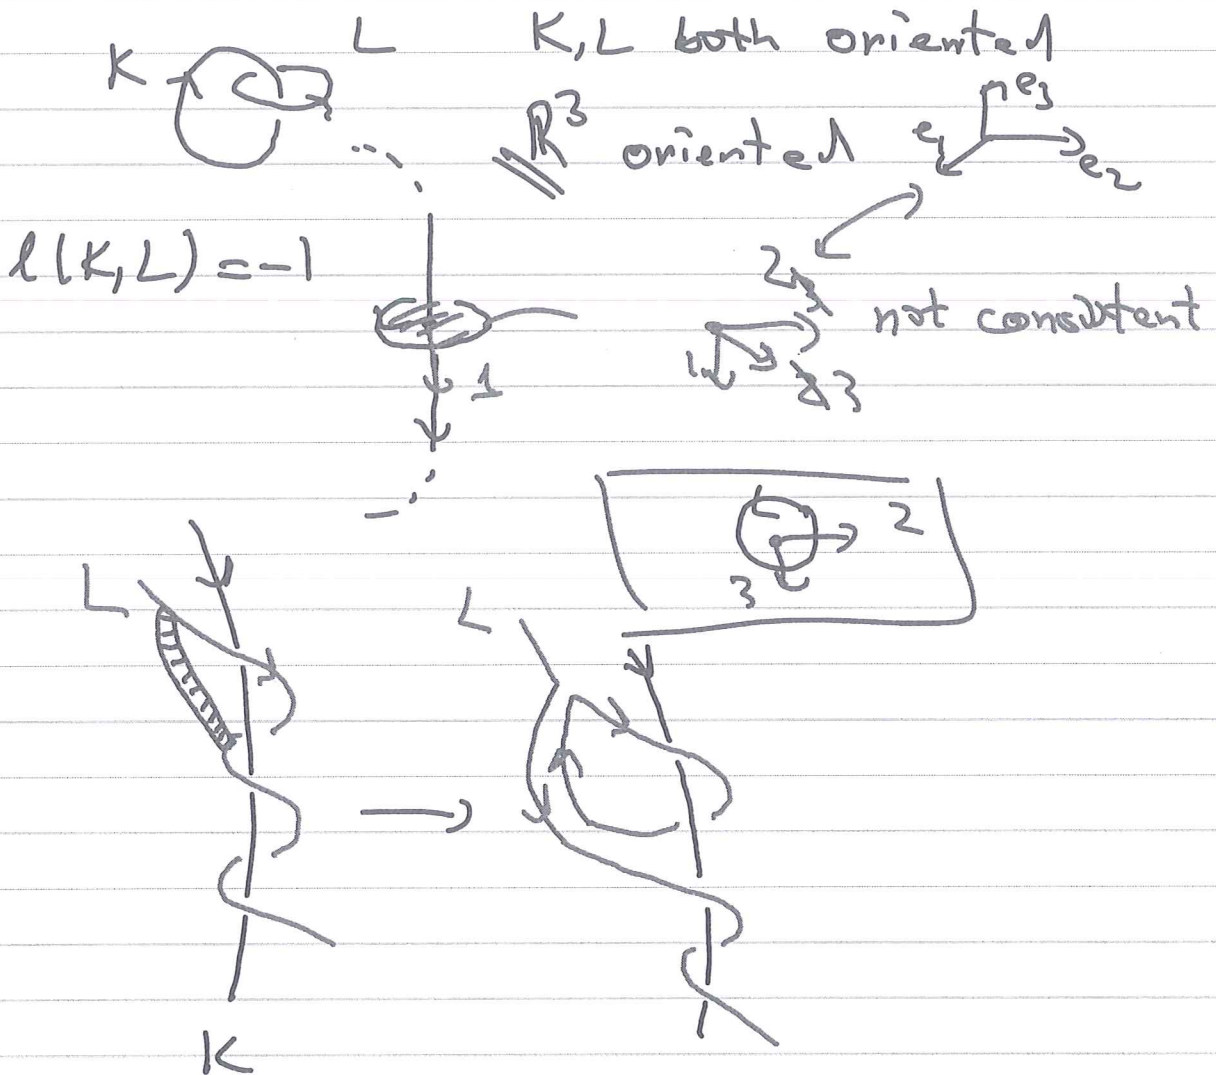 K L K, L both oriented
ℝ³ oriented e₁ e₂ e₃
l(K,L) = -1
2 not consistent
1 1 3
L 2
3
L L
K